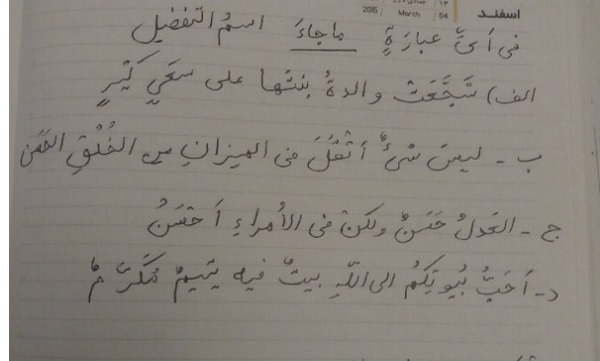 اسفند
2015 / March / 04
فی أَیِّ عبارَةٍ ماجاءَ اسمُ التفضیل
الف) شَجَّعَتْ والدةُ بنتَها علی سَعَیٍ کَثیرٍ
ب - لیسَ شیءٌ اَثْقَلَ فی المیزانِ مِن الخُلْقِ الحَسَن
ج - العَدلُ حَسَنٌ ولکنْ فی الأُمراءِ اَحْسَنُ
د - اَحَبُّ بُیوتِکُم الی اللّهِ بیتٌ فیه یتیمٌ مُکَرَّمٌ